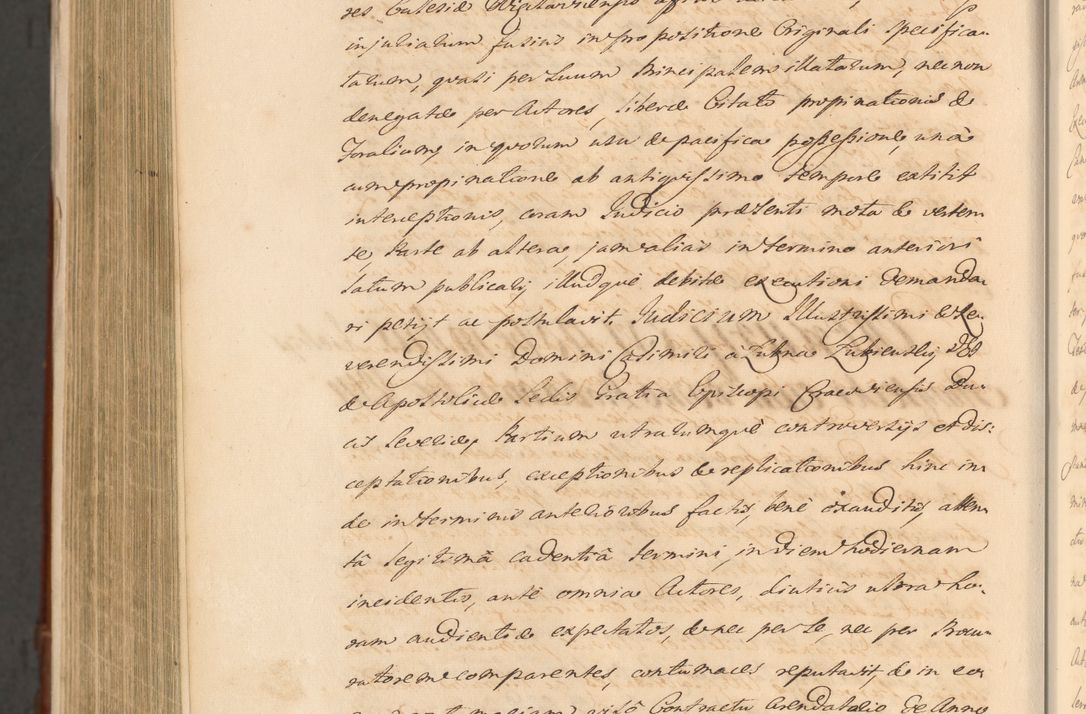 injuriarum fusius in propositione Originali specifica-
tarum, quasi per suum Principalem illatarum, nec non
denegatæ per Actores, liberæ Citatis propinationis &
Foralium, in quorum usu & pacifica possessione, una
cum propinatione ab antiquissimo tempore extitit
interceptionis, coram Judicio præsenti mota & verten-
te, Parte ab altera, jam alias in termino anteriori
latum publicari, illudque debitæ executioni demanda-
ri petijt ac postulavit. Judicium Illustrissimi & Re-
verendissimi Domini Casimiri a Lubna Lubienski, DEI
& Apostolicæ Sedis Gratia Episcopi Cracoviensis Du-
cis Severiæ, Partium utrarumque controversijs et dis-
ceptationibus, exceptionibus & replicationibus hinc in-
de in terminis anterioribus factis, bene exauditis, atten-
tâ legitimâ cadentiâ termini, in diem hodiernam
incidentis, ante omnia Actores, diutius ultra ho-
ram audientiæ expectatos, & nec per se, nec per Procu-
ratorem comparentes, contumaces reputavit, & in eo-
contumaciam viso Contractu Arendatorio de Anno